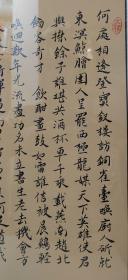 何處相逢登寶釵樓訪銅雀臺喚厨人斫就
東溟鯨膾圉人呈罷西極龍媒天下英雄使君
與操餘子誰堪共酒杯車千乘載燕南趙北
劍客奇才飲酣畫鼓如雷誰信被晨鷄輕
喚回歎年光過盡功名未立書生老去機會方